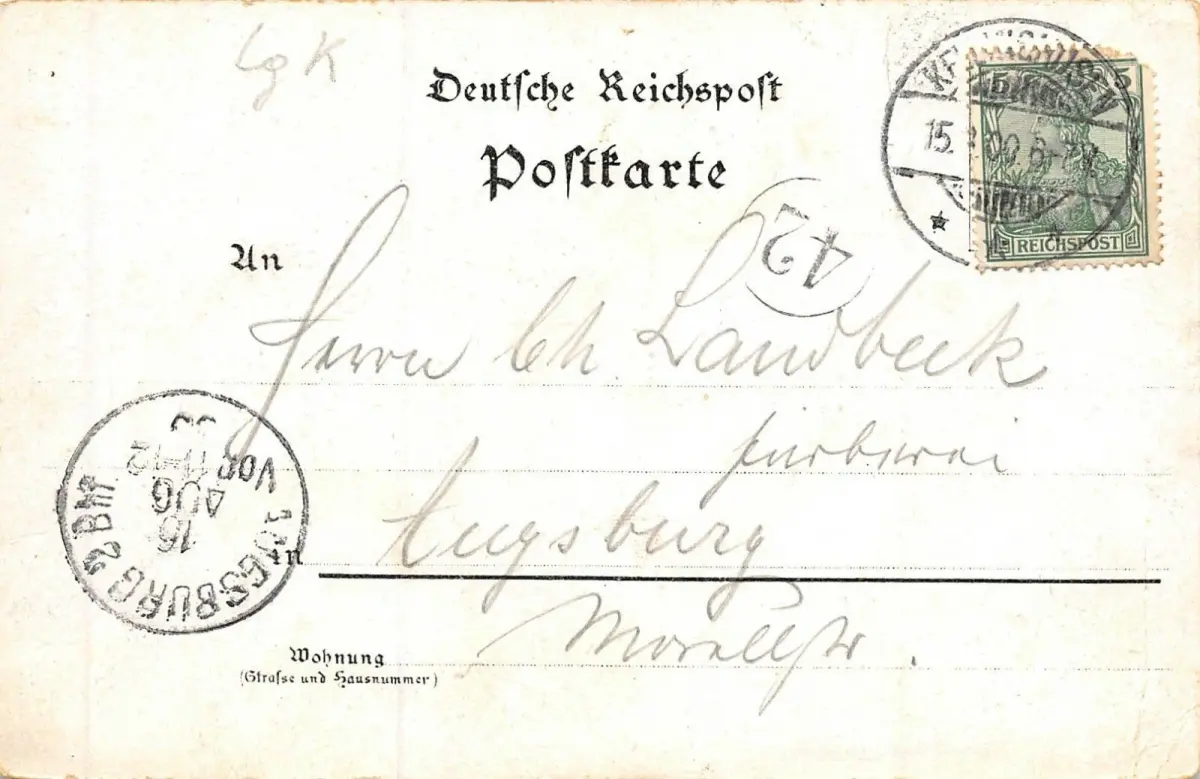 Lg K
Deutsche Reichspost
Postkarte
5 5
15. .00. 6-7N.
REICHSPOST
42
An
Herrn Ch. Landbeck
Färberei
in Augsburg
Morellstr.
Wohnung
(Strasse und Hausnummer)
AUGSBURG 2 BHf
16
AUG
VOR 11-12
00